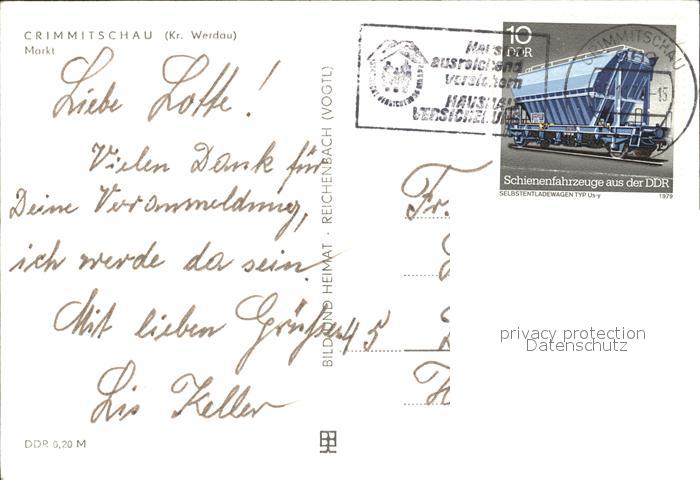 CRIMMITSCHAU (Kr. Werdau)
Markt
Liebe Lotte!
Vielen Dank für
Deine Voranmeldung,
ich werde da sein.
Mit lieben Grüßen
Lis Keller
DDR 0,20 M
BILD UND HEIMAT · REICHENBACH (VOGTL)
45
Fr.
ausreichend
versichern
HAUSHALT
VERSICHERUNG
10
DDR
CRIMMITSCHAU
-15
Schienenfahrzeuge aus der DDR
SELBSTENTLADEWAGEN TYP Us-y 1979
privacy protection
Datenschutz